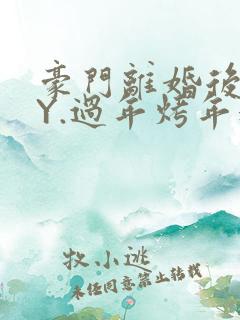 豪門離婚後
Y.過年烤年
牧小逃
未任同意禁止转载